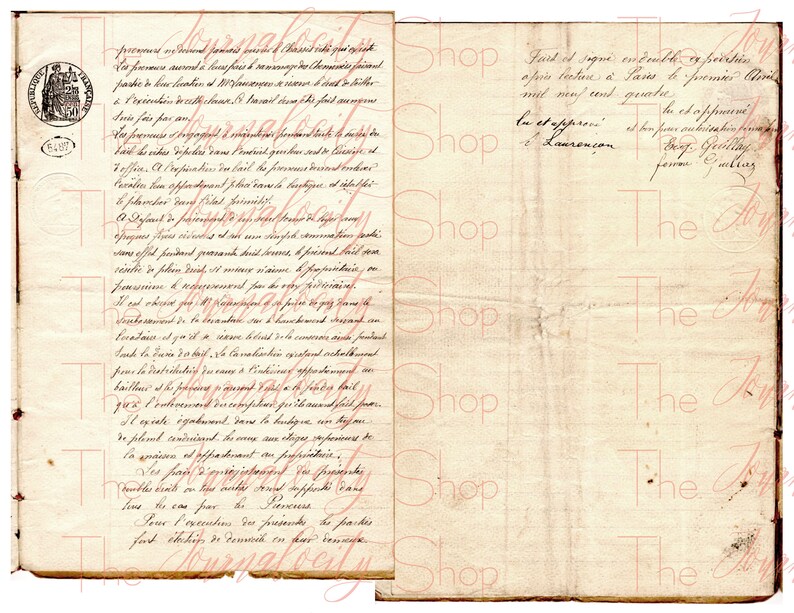 RÉPUBLIQUE FRANÇAISE
50
preneurs ne devront jamais ouvrir le Chassis vitré qui existe
Les preneurs auront à leurs frais le ramonage des Cheminées faisant
partie de leur location et Mr Laurençon se réserve le droit de veiller
à l'exécution de cette clause. Ce travail devra être fait au moins
trois fois par an.
Les preneurs s'engagent à maintenir pendant toute la durée du
bail les vitres dépolies dans l'endroit qui leur sert de Cuisine et
d'office. A l'expiration du bail les preneurs devront enlever
l'escalier leur appartenant placé dans la boutique et rétablir
le plancher dans l'état primitif.
A Défaut de paiement d'un seul terme de loyer aux
époques fixées ci dessus et sur une simple sommation restée
sans effet pendant quarante huit heures, le présent bail sera
résilié de plein droit, si mieux n'aime le propriétaire en
poursuivre le recouvrement par les voies judiciaires.
Il est observé que Mr Laurençon a sa prise de gaz dans le
soubassement de la devanture sur le branchement servant au
locataire et qu'il se réserve le droit de la conserver ainsi pendant
toute la durée du bail. La Canalisation existant actuellement
pour la distribution des eaux à l'intérieur appartiennent au
bailleur et les preneurs n'auront droit à la fin du bail
qu'à l'enlèvement du compteur qu'ils auront fait poser.
Il existe également dans la boutique un tuyau
de plomb conduisant les eaux aux étages supérieurs de
la maison et appartenant au propriétaire.
Les frais d'enregistrement des présentes
doubles droits ou tous autres seront supportés dans
tous les cas par les Preneurs.
Pour l'exécution des présentes les parties
font élection de domicile en leur demeure
Fait et signé en double expédition
après lecture à Paris le premier Avril
mil neuf cent quatre
lu et approuvé
et bon pour autorisation
lu et approuvé
Laurençon
femme
The Journalocity Shop
The Journalocity Shop
The Journalocity Shop
The Journalocity Shop
The Journalocity Shop
The Journalocity Shop
The Journalocity Shop